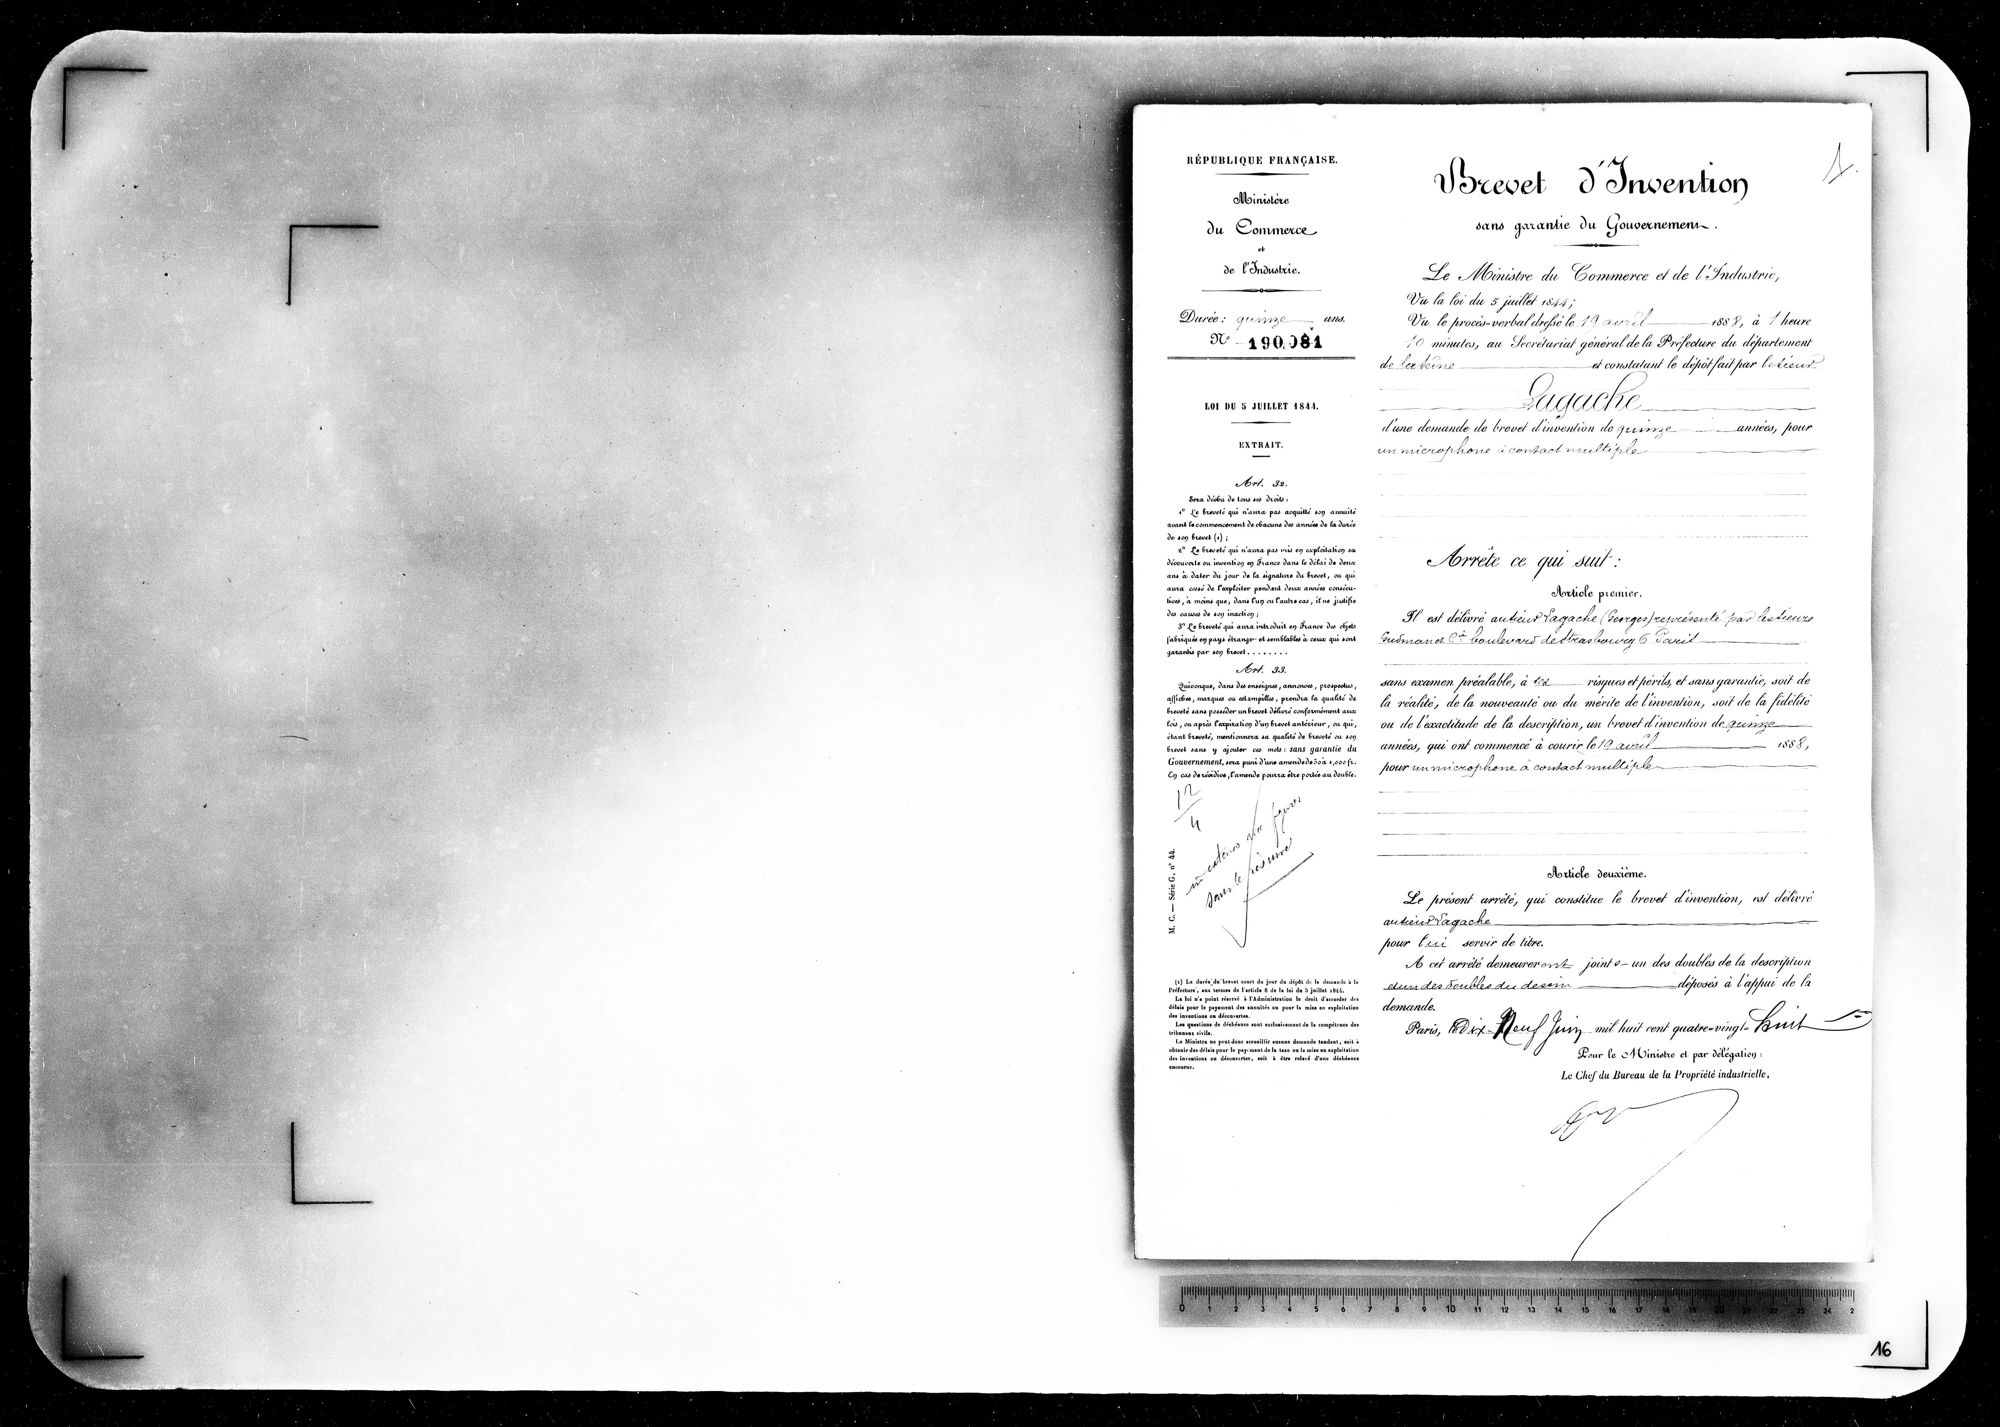 RÉPUBLIQUE FRANÇAISE.
Ministère
du Commerce
et
de l'Industrie.
Durée : quinze ans.
N° 190,081
LOI DU 5 JUILLET 1844.
EXTRAIT.
Art. 32.
Sera déchu de tous ses droits :
1° Le breveté qui n'aura pas acquitté son annuité
avant le commencement de chacune des années de la durée
de son brevet (1) ;
2° Le breveté qui n'aura pas mis en exploitation sa
découverte ou invention en France dans le délai de deux
ans à dater du jour de la signature du brevet, ou qui
aura cessé de l'exploiter pendant deux années consécu-
tives, à moins que, dans l'un ou l'autre cas, il ne justifie
des causes de son inaction ;
3° Le breveté qui aura introduit en France des objets
fabriqués en pays étranger et semblables à ceux qui sont
garantis par son brevet . . . . . . . .
Art. 33.
Quiconque, dans des enseignes, annonces, prospectus,
affiches, marques ou estampilles, prendra la qualité de
breveté sans posséder un brevet délivré conformément aux
lois, ou après l'expiration d'un brevet antérieur, ou qui,
étant breveté, mentionnera sa qualité de breveté ou son
brevet sans y ajouter ces mots : sans garantie du
Gouvernement, sera puni d'une amende de 50 à 1,000 fr.
En cas de récidive, l'amende pourra être portée au double.
12
4
figures
sous le
M. C. — Série G, n° 44.
(1) La durée du brevet court du jour du dépôt de la demande à la
Préfecture, aux termes de l'article 8 de la loi du 5 juillet 1844.
La loi n'a point réservé à l'Administration le droit d'accorder des
délais pour le payement des annuités ou pour la mise en exploitation
des inventions ou découvertes.
Les questions de déchéance sont exclusivement de la compétence des
tribunaux civils.
Le Ministre ne peut donc accueillir aucune demande tendant, soit à
obtenir des délais pour le payement de la taxe ou la mise en exploitation
des inventions ou découvertes, soit à être relevé d'une déchéance
encourue.
Brevet d'Invention
sans garantie du Gouvernement.
Le Ministre du Commerce et de l'Industrie,
Vu la loi du 5 juillet 1844 ;
Vu le procès-verbal dressé le 19 avril 1888, à 1 heure
10 minutes, au Secrétariat général de la Préfecture du département
de la Seine et constatant le dépôt fait par le sieur
Lagache
d'une demande de brevet d'invention de quinze années, pour
un microphone à contact multiple
Arrête ce qui suit :
Article premier.
Il est délivré au sieur Lagache (Georges) représenté par les sieurs
et Cie boulevard de Strasbourg 6 Paris
sans examen préalable, à ses risques et périls, et sans garantie, soit de
la réalité, de la nouveauté ou du mérite de l'invention, soit de la fidélité
ou de l'exactitude de la description, un brevet d'invention de quinze
années, qui ont commencé à courir le 19 avril 1888,
pour un microphone à contact multiple
Article deuxième.
Le présent arrêté, qui constitue le brevet d'invention, est délivré
au sieur Lagache
pour lui servir de titre.
A cet arrêté demeureront joints un des doubles de la description
et un des doubles du dessin déposés à l'appui de la
demande.
Paris, le Dix-Neuf Juin mil huit cent quatre-vingt-huit
Pour le Ministre et par délégation :
Le Chef du Bureau de la Propriété industrielle,
0 1 2 3 4 5 6 7 8 9 10 11 12 13 14 15 16 17 18 19 20 21 22 23 24 2
16